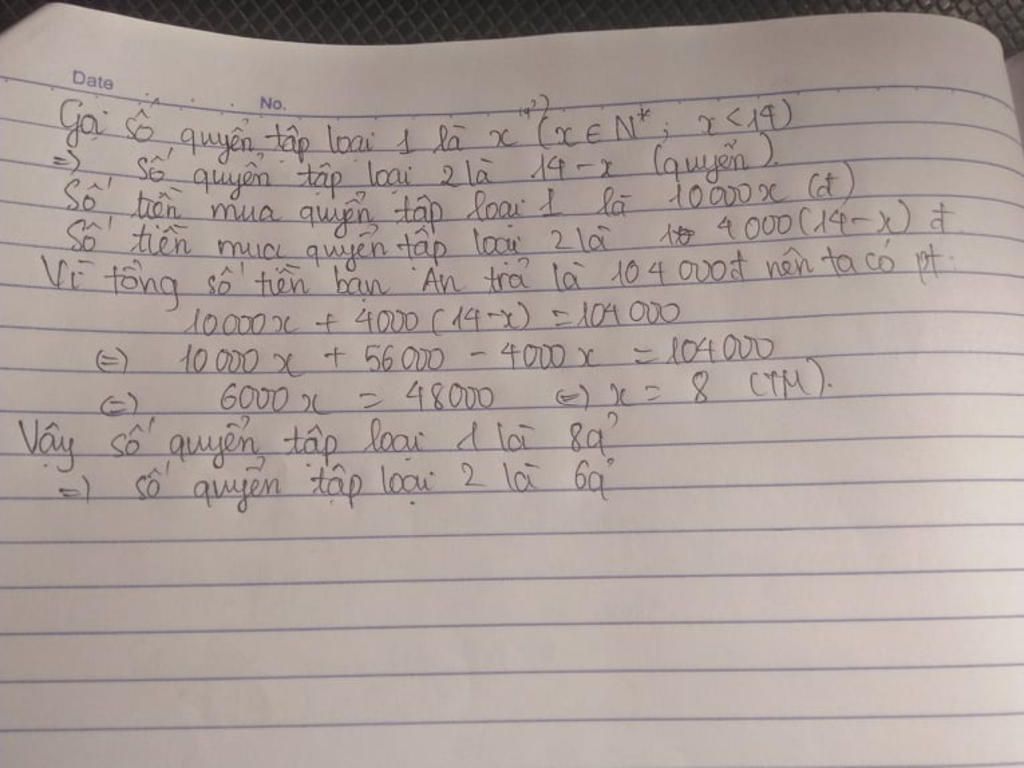 Date
No.
Gọi số quyển tập loại 1 là x (q') (x ∈ N*; x < 14)
=) số quyển tập loại 2 là 14 - x (quyển).
Số tiền mua quyển tập loại 1 là 10000x (đ)
Số tiền mua quyển tập loại 2 là 4000(14-x) đ
Vì tổng số tiền bạn An trả là 104 000đ nên ta có pt:
10000x + 4000 (14-x) = 104 000
(=) 10 000 x + 56 000 - 4000 x = 104 000
(=) 6000 x = 48000 (=) x = 8 (TM).
Vậy số quyển tập loại 1 là 8q'
=) số quyển tập loại 2 là 6q'